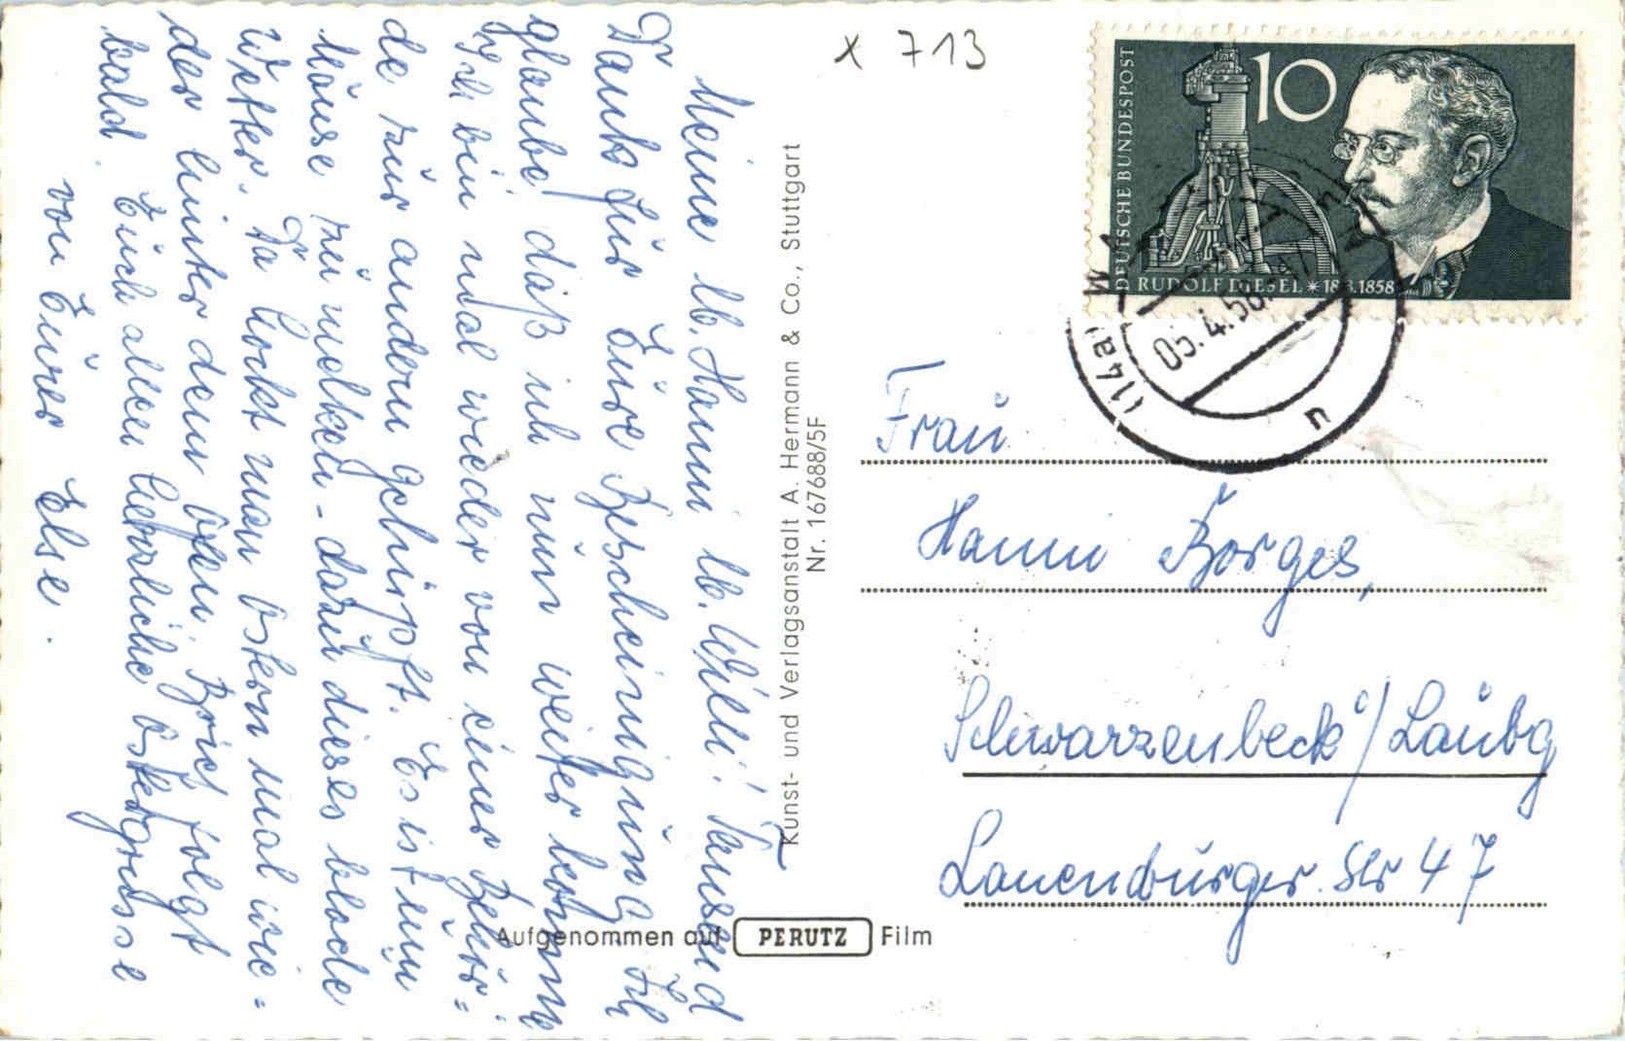 Meine lb. Hanni lb. Willi! Tausend
Dank für Eure Bescheinigung. Ich
glaube, daß ich nun weiter komme
Ich bin mal wieder von einer Behör=
de zur andern gehüpft. Es ist zum
Mäuse zu melken - dazu dieses blöde
Wetter. Da hockt man Ostern mal wie=
der hinter dem Ofen. Brief folgt
bald. Euch allen herzliche Ostergrüsse
von Eurer Else.
x 713
Kunst- und Verlagsanstalt A. Hermann & Co., Stuttgart
Nr. 167688/5F
Aufgenommen auf PERUTZ Film
DEUTSCHE BUNDESPOST
10
RUDOLF DIESEL * 18.3.1858
(14a)
05.4.58
Frau
Hanni Borges,
Schwarzenbeck / Laubg
Lauenburger Str 47